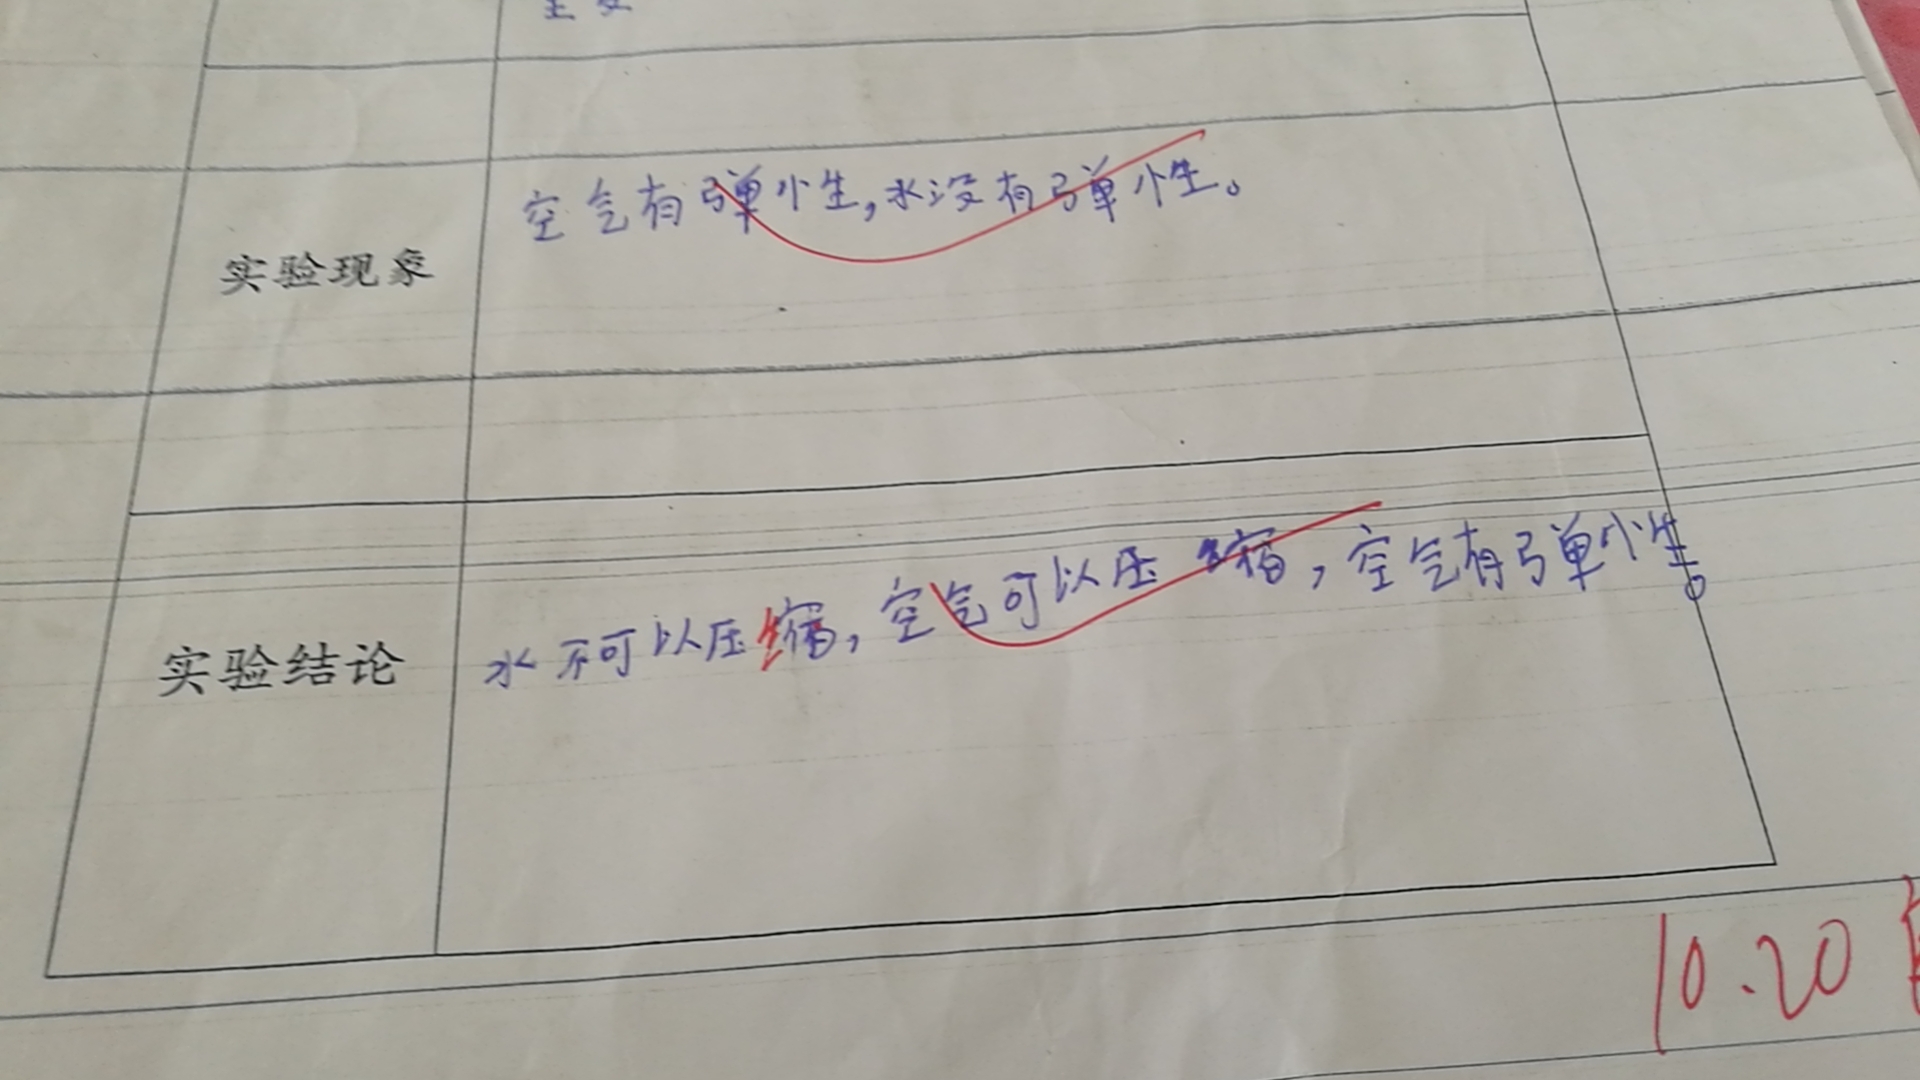 实验现象
空气有弹性,水没有弹性。
实验结论
水不可以压缩,空气可以压缩,空气有弹性。
10.20